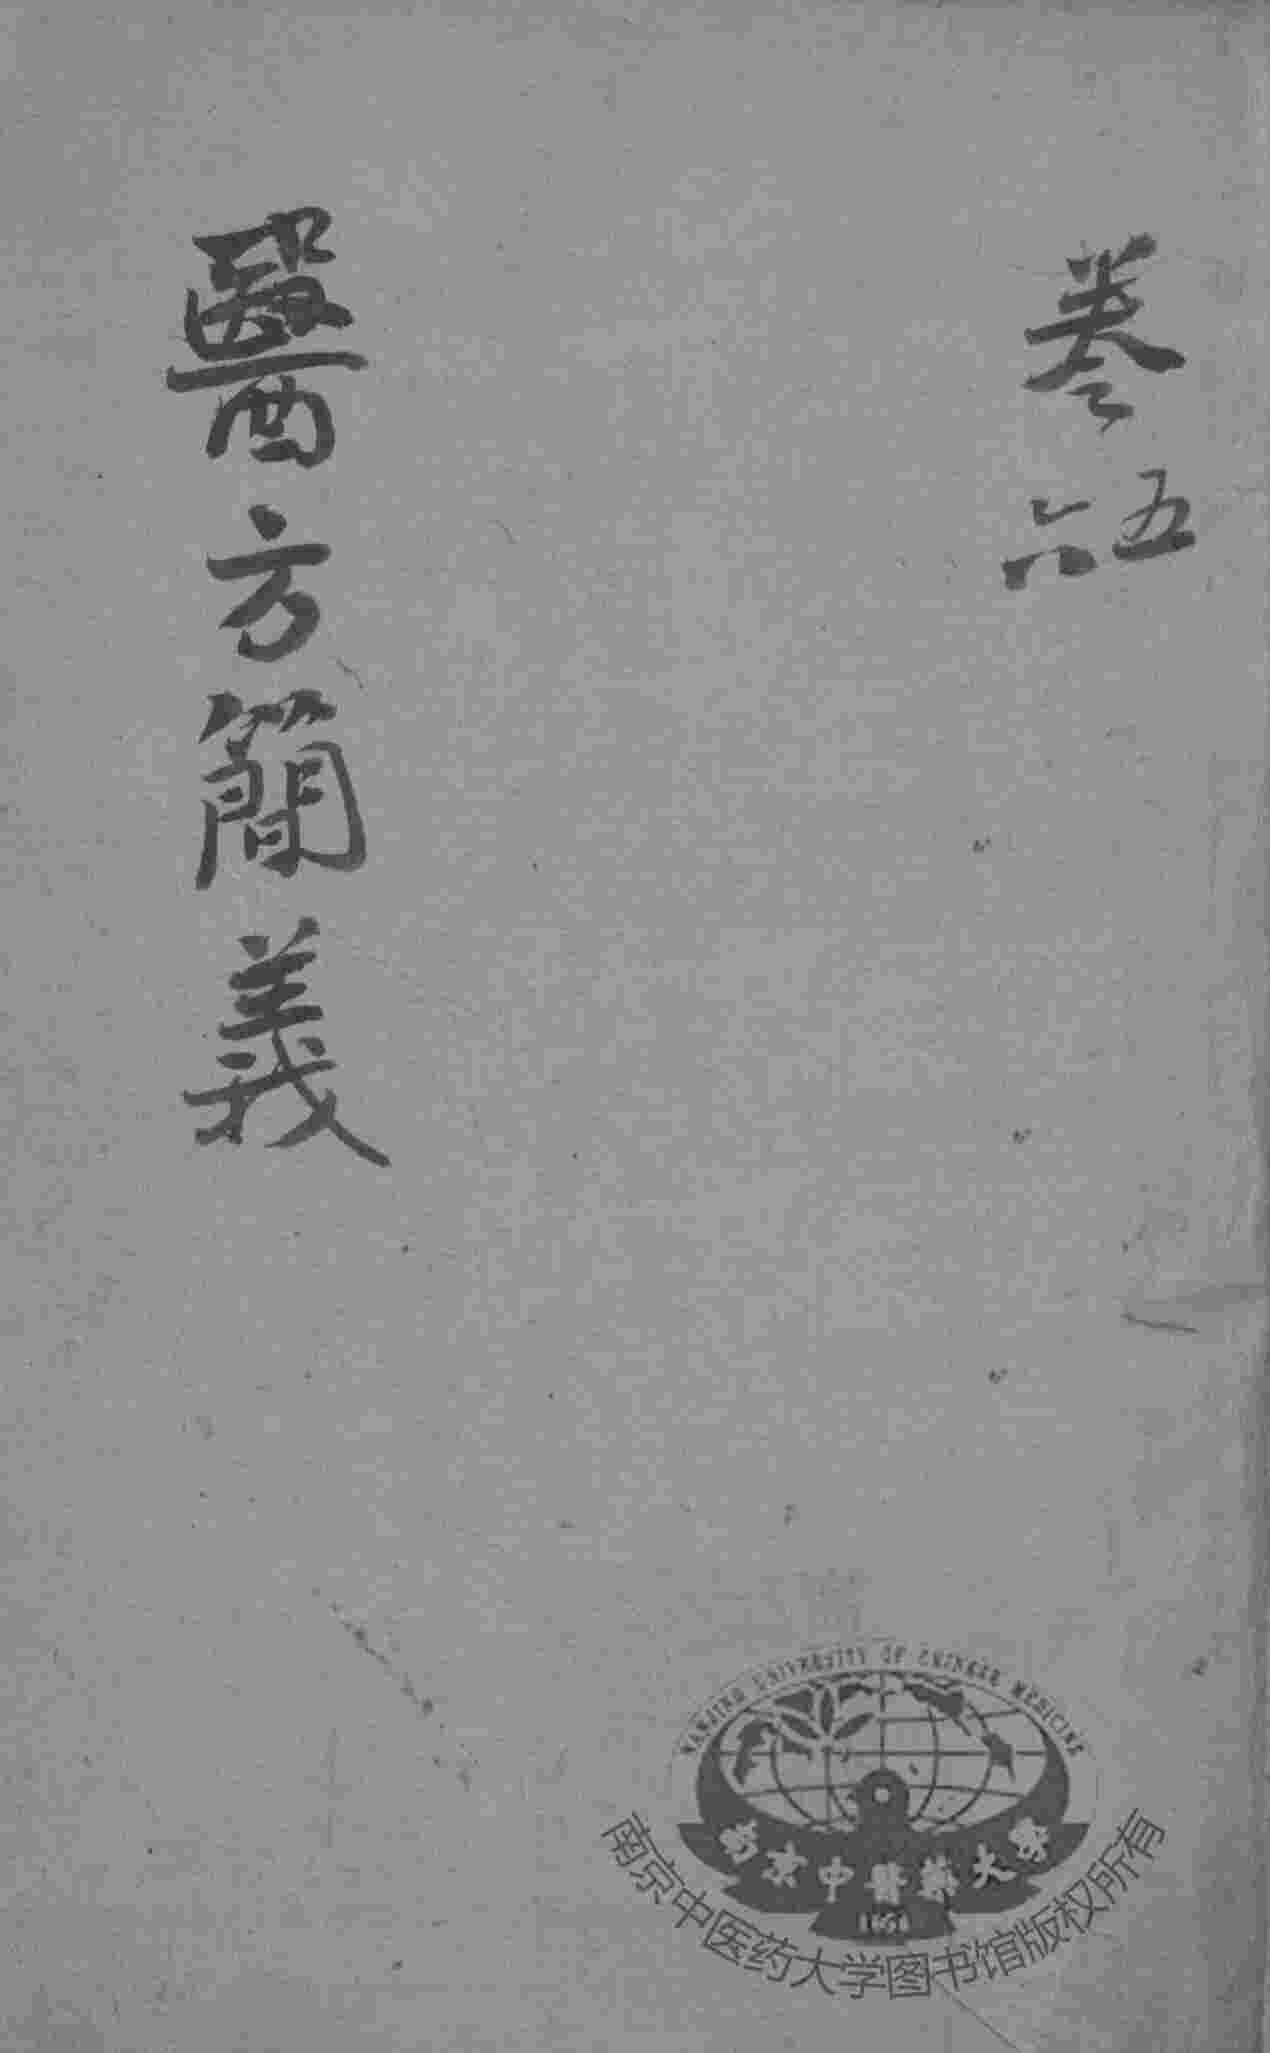 卷五六
醫方簡義
NANJING UNIVERSITY OF CHINESE MEDICINE
南京中醫藥大學
南京中医药大学图书馆版权所有